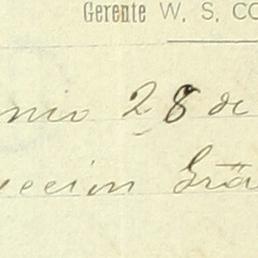 Gerente W. S. CO
nio 28 de
ección Grá